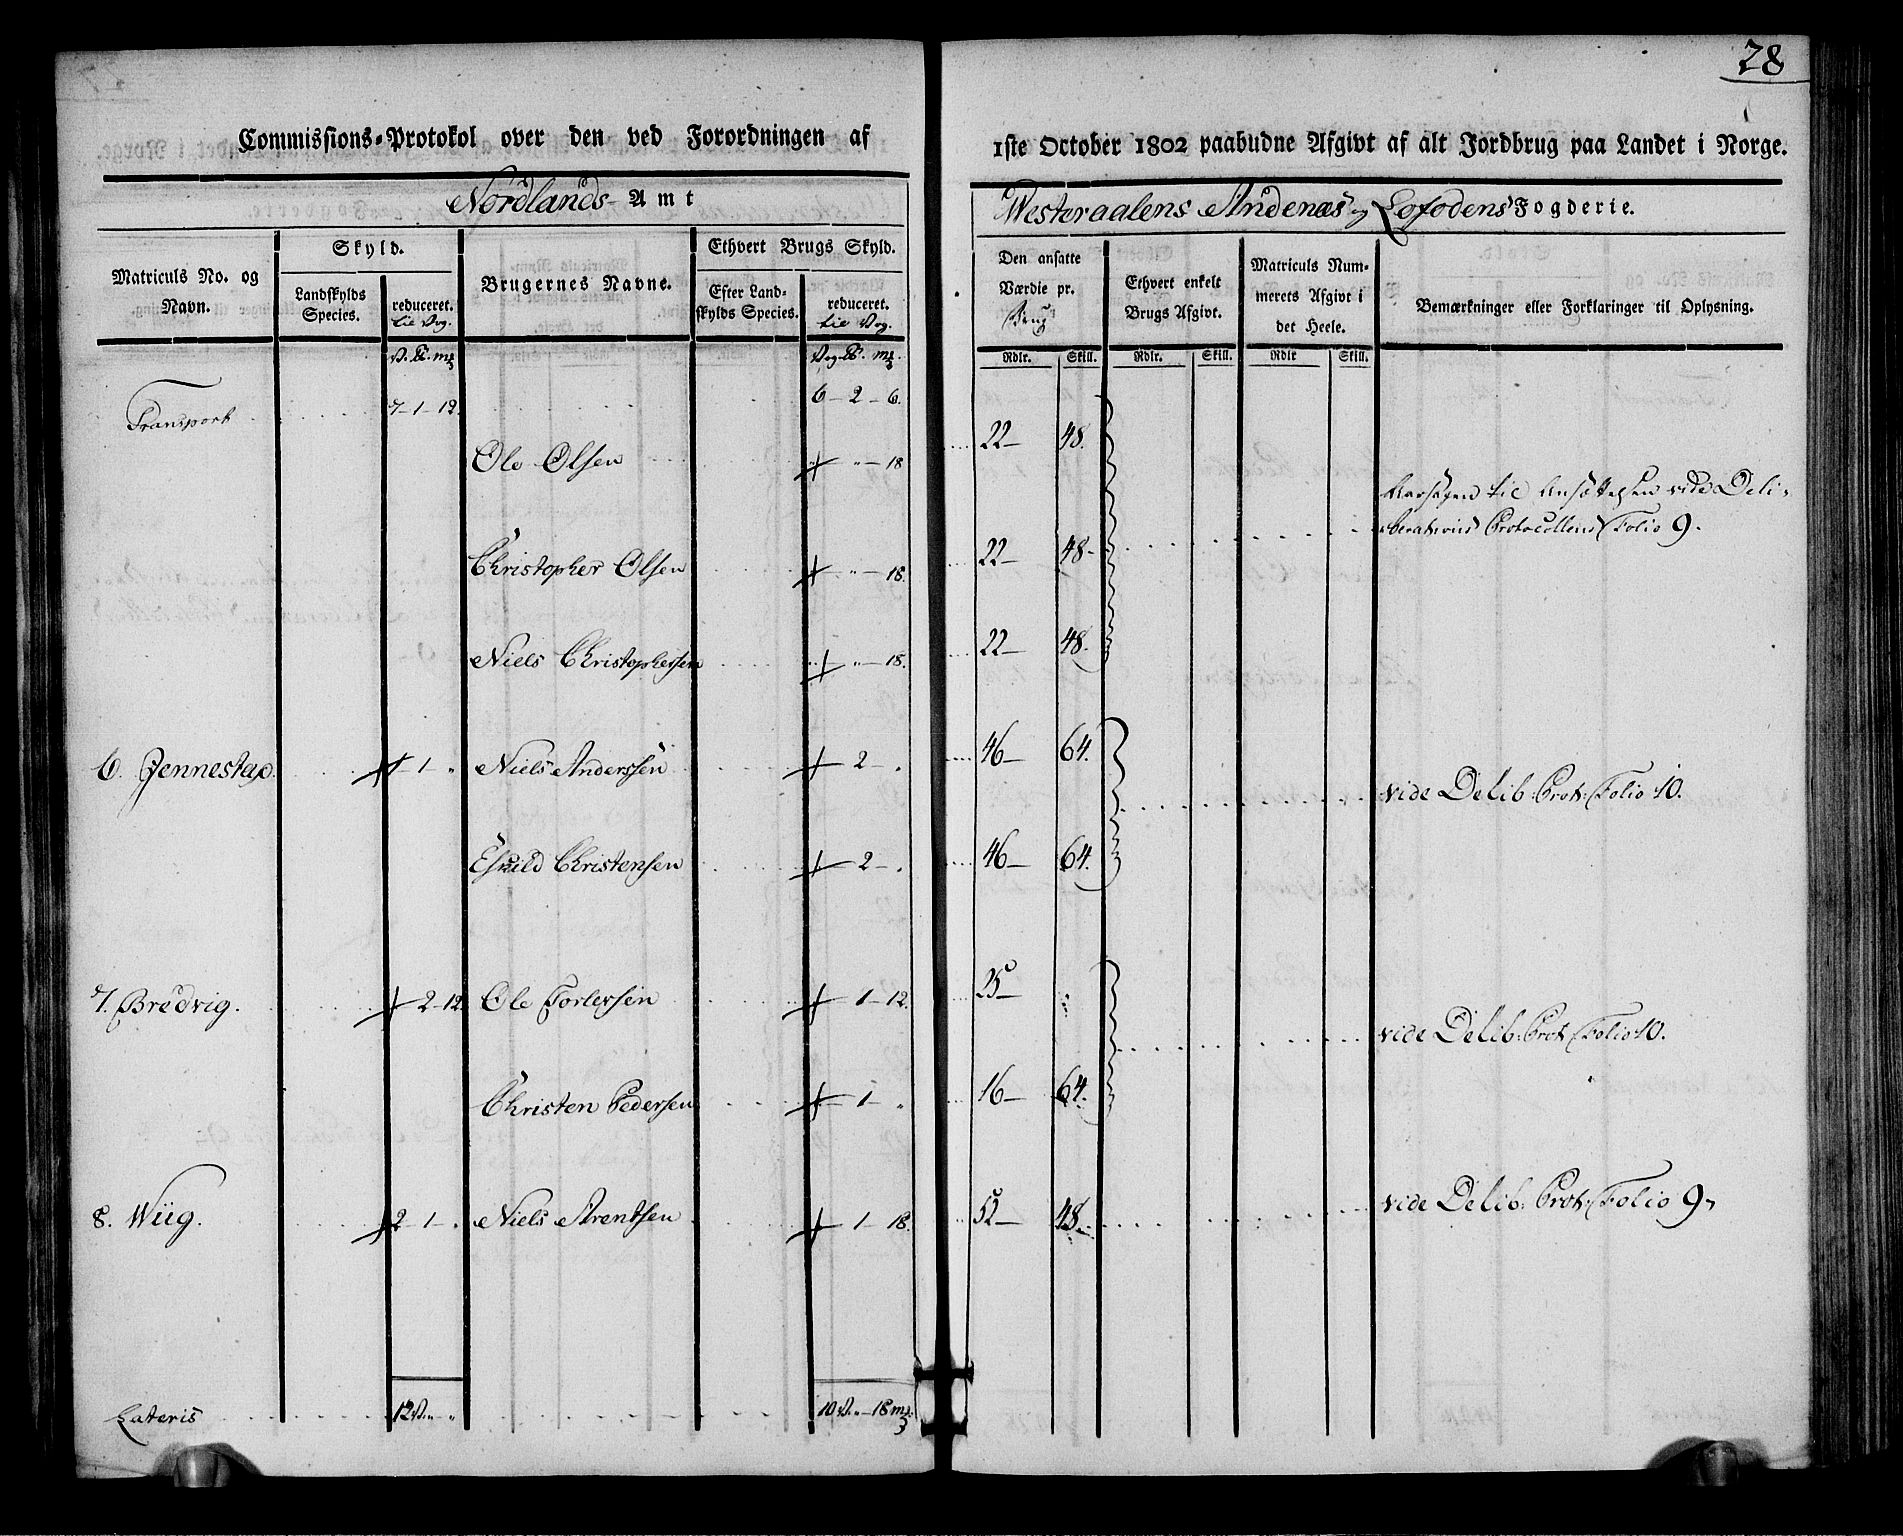 28
Commissions-Protokol over den ved Forordningen af 1ste October 1802 paabudne Afgivt af alt Jordbrug paa Landet i Norge.
Nordlands Amt
Westeraalens Andenæs og Lofodens Fogderie.
Matriculs No. og Navn.
Skyld.
Landskylds Species.
reduceret. til Vog.
Brugernes Navne.
Ethvert Brugs Skyld.
Efter Landskylds Species.
reduceret. til Vog.
Den ansatte Værdie pr. Brug
Ethvert enkelt Brugs Afgivt.
Matriculs Nummerets Afgivt i det Heele.
Bemærkninger eller Forklaringer til Oplysning.
Rdlr. Skill. Rdlr. Skill. Rdlr Skill.
Transport 7-1-12. 6-2-6.
Ole Olsen " - 18 22- 48.
Aarsagen til Ansættelsen vide Deli-
berations Protocollens Folio 9.
Christopher Olsen " - 18. 22- 48-
Niels Christophersen " - 18. 22- 48.
6. Jennestap 1-1-" Niels Anderssen 2-" 46- 64. vide Delib: Prot: Folio 10.
Eskild Christensen 2-" 46- 64.
7. Bredvig. 2-12. Ole Torlersen 1-12. 25- " vide Delib: Prot: Folio 10.
Christen Pedersen 1-" 16- 64.
8. Wiig. 2-1-" Niels Arentsen 1-18. 52- 48. vide Delib: Prot: Folio 9
Lateris 12 V. " - " 10 V. " - 18 mk